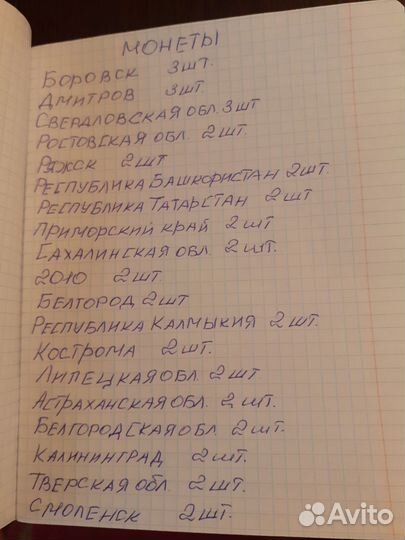 МОНЕТЫ
БОРОВСК 3 ШТ.
ДМИТРОВ 3 ШТ.
СВЕРДЛОВСКАЯ ОБЛ. 3 ШТ
РОСТОВСКАЯ ОБЛ. 2 ШТ.
РЯЖСК 2 ШТ
РЕСПУБЛИКА БАШКОРИСТАН 2 ШТ.
РЕСПУБЛИКА ТАТАРСТАН 2 ШТ
ПРИМОРСКИЙ КРАЙ 2 ШТ
САХАЛИНСКАЯ ОБЛ. 2 ШТ.
2010 2 ШТ
БЕЛГОРОД 2 ШТ
РЕСПУБЛИКА КАЛМЫКИЯ 2 ШТ.
КОСТРОМА 2 ШТ.
ЛИПЕЦКАЯ ОБЛ. 2 ШТ
АСТРАХАНСКАЯ ОБЛ. 2 ШТ.
БЕЛГОРОДСКАЯ ОБЛ. 2 ШТ.
КАЛИНИНГРАД 2 ШТ.
ТВЕРСКАЯ ОБЛ. 2 ШТ.
СМОЛЕНСК 2 ШТ.
Avito